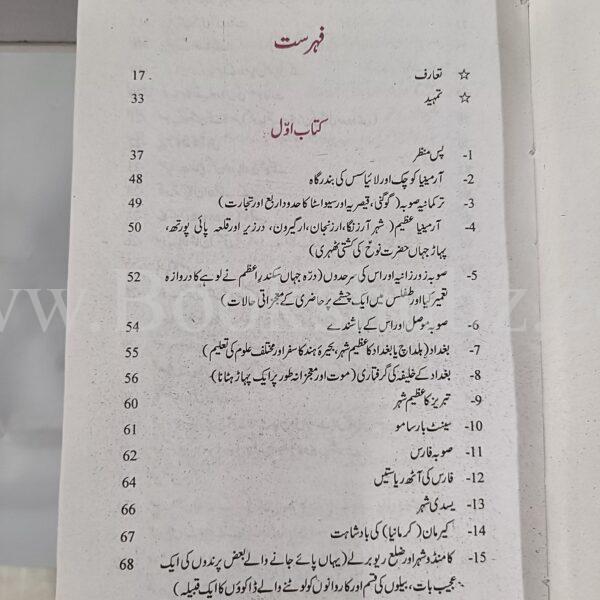 فہرست
☆ تعارف 17
☆ تمہید 33
کتاب اوّل
1- پس منظر 37
2- آرمینیا کوچک اور لائیاسس کی بندرگاہ 48
3- ترکمانیہ صوبہ (گوگنی، قیصریہ اور سیواسٹا کا حدود اربع اور تجارت) 49
4- آرمینیا عظیم (شہر آرزنگا، ارزنجان، ارگیرون، درزیر اور قلعہ پائی پورتھ، 50
پہاڑ جہاں حضرت نوحؑ کی کشتی ٹھہری)
5- صوبہ زورزانیہ اور اس کی سرحدوں (درّہ جہاں سکندر اعظم نے لوہے کا دروازہ 52
تعمیر کیا اور طفلس میں ایک چشمے پر حاضری کے معجزاتی حالات)
6- صوبہ موصل اور اس کے باشندے 54
7- بغداد (بلداچ یا بغداد کا عظیم شہر، بحیرۂ ہند کا سفر اور مختلف علوم کی تعلیم) 55
8- بغداد کے خلیفہ کی گرفتاری (موت اور معجزانہ طور پر ایک پہاڑ ہٹانا) 56
9- تبریز کا عظیم شہر 60
10- سینٹ بارسامو 61
11- صوبہ فارس 62
12- فارس کی آٹھ ریاستیں 64
13- یسدی شہر 66
14- کیرمان (کرمانیا) کی بادشاہت 67
15- کامنڈو شہر اور ضلع ریوبرلے (یہاں پائے جانے والے بعض پرندوں کی ایک 68
عجیب بات، بیلوں کی قسم اور کاروانوں کو لوٹنے والے ڈاکوؤں کا ایک قبیلہ)